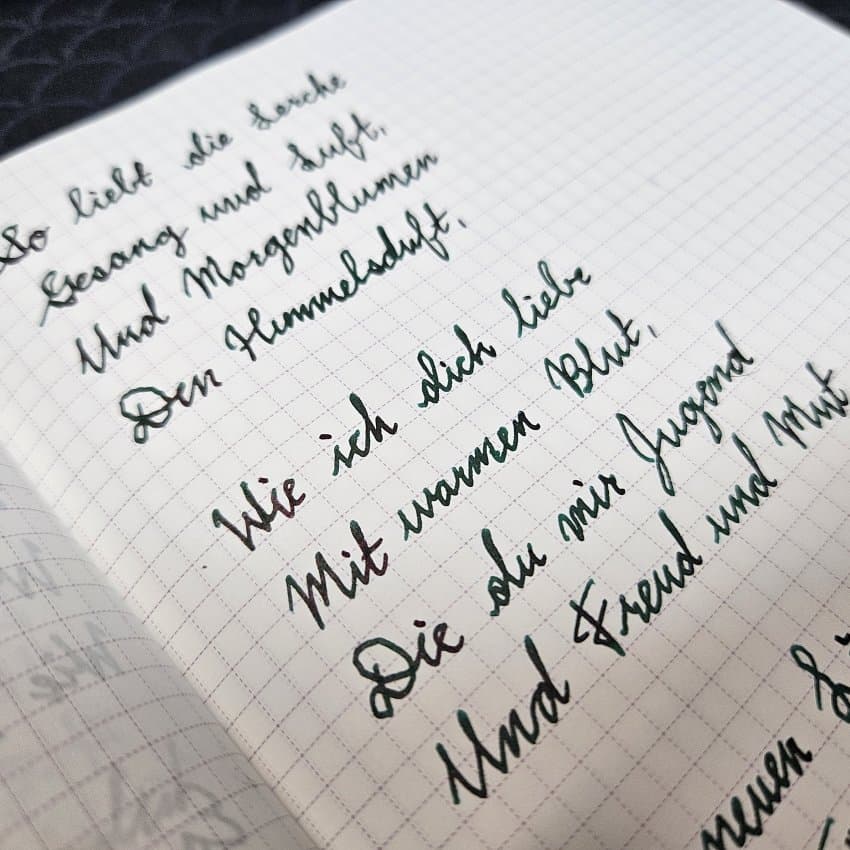 So liebt die Lerche
Gesang und Luft,
Und Morgenblumen
Den Himmelsduft,
Wie ich dich liebe
Mit warmen Blut,
Die du mir Jugend
Und Freud und Mut
neuen